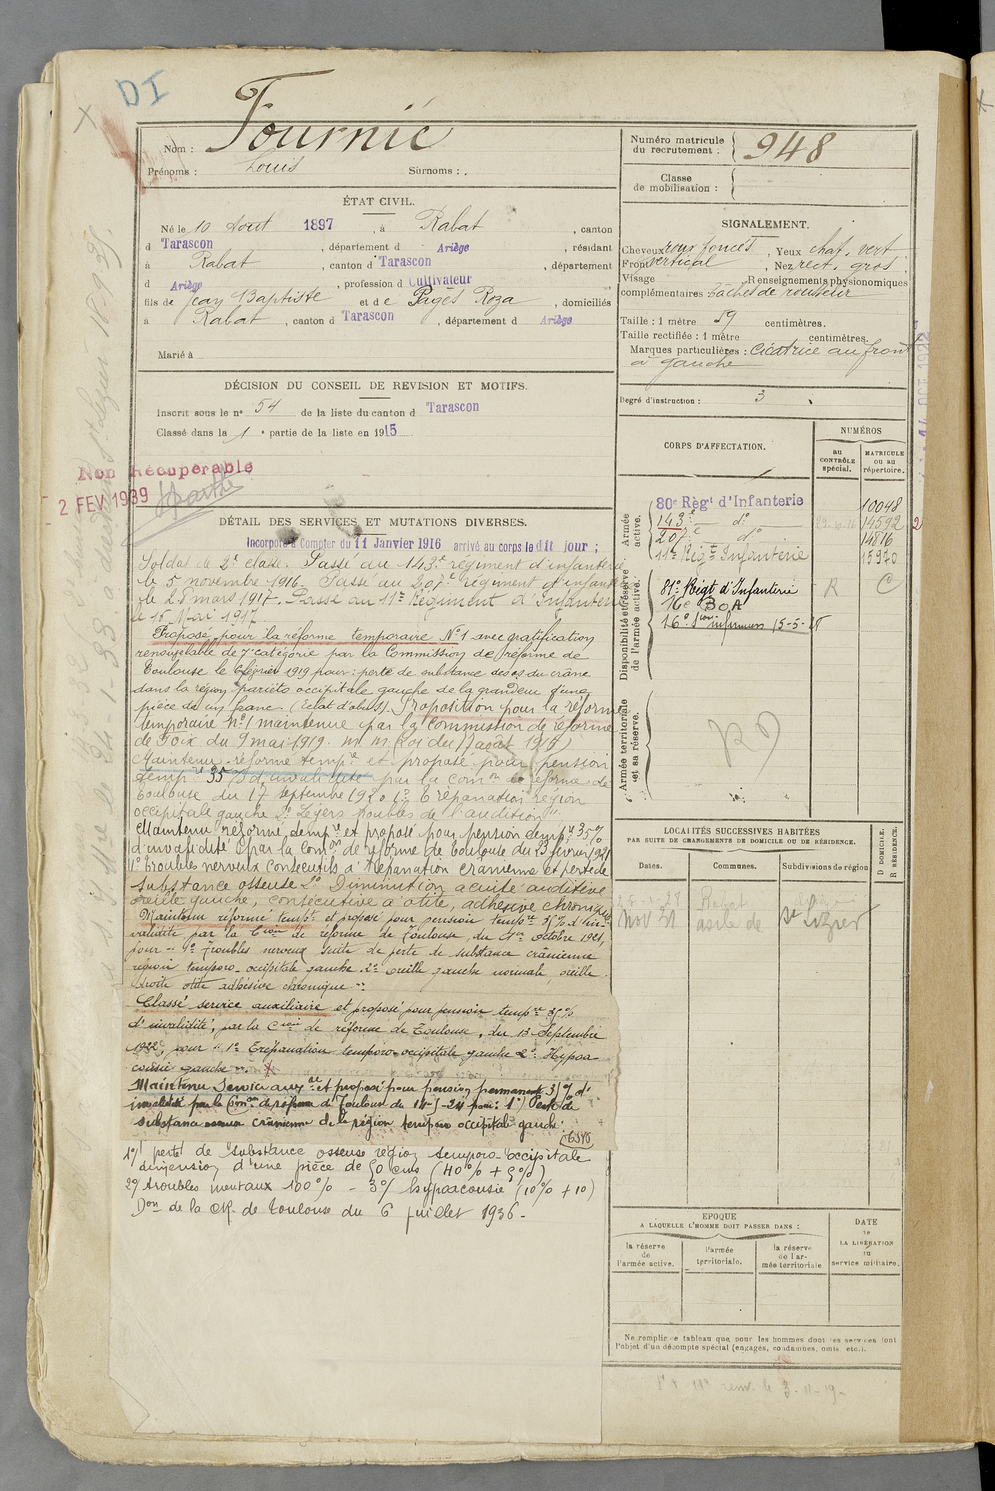 DI
Nom : Fournié
Prénoms : Louis Surnoms : .
ÉTAT CIVIL.
Né le 10 Aout 1897, à Rabat, canton
d Tarascon, département d Ariège, résidant
à Rabat, canton d Tarascon, département
d Ariège, profession d Cultivateur
fils de Jean Baptiste et de Pagès Roza, domiciliés
à Rabat, canton d Tarascon, département d Ariège
Marié à
DÉCISION DU CONSEIL DE REVISION ET MOTIFS.
Inscrit sous le n° 54 de la liste du canton d Tarascon
Classé dans la 1e partie de la liste en 1915
Non Récupérable
2 FEV 1939
DÉTAIL DES SERVICES ET MUTATIONS DIVERSES.
Incorporé à Compter du 11 Janvier 1916 arrivé au corps le dit jour ;
Soldat de 2e classe. Passé au 143e régiment d'infanterie
le 5 novembre 1916. Passé au 207e régiment d'infanterie
le 28 mars 1917. Passé au 11e Régiment d'Infanterie
le 15 Mai 1917
Proposé pour la réforme temporaire N°1 avec gratification
renouvelable de 7e catégorie par la Commission de réforme de
Toulouse le février 1919 pour : perte de substance des os du crâne
dans la région pariéto occipitale gauche de la grandeur d'une
pièce de un franc. (Eclat d'obus). Proposition pour la réforme
temporaire n°1 maintenue par la Commission de réforme
de Foix du 9 mai 1919.
Maintenu réforme tempre et proposé pour pension
tempre 35% d'invalidité par la Comon de réforme de
Toulouse du 17 septembre 1920 1° Trépanation région
occipitale gauche 2° Légers troubles de l'audition".
Maintenu réformé tempre et proposé pour pension tempre 35%
d'invalidité par la Comon de réforme de Toulouse du 23 février 1921
"1° troubles nerveux consécutifs à trépanation crânienne et perte de
substance osseuse 2° Diminution acuité auditive
oreille gauche, consécutive à otite, adhésive chronique
Maintenu réformé tempre et proposé pour pension tempre 35% d'in-
validité par la Cion de réforme de Toulouse, du 1er octobre 1921,
pour "1° Troubles nerveux suite de perte de substance crânienne
région temporo-occipitale gauche 2° oreille gauche normale, oreille
droite otite adhésive chronique".
Classé service auxiliaire et proposé pour pension tempre 35%
d'invalidité, par la Cion de réforme de Toulouse, du 13 Septembre
1922, pour "1° Trépanation temporo-occipitale gauche 2° Hypoa-
cousie gauche".
Maintenu Service auxre et proposé pour pension permanente 35% d'
invalidité par la Comon de réforme de Toulouse du 14-5-24 pour : 1° Perte de
substance osseuse crânienne de la région temporo occipitale gauche.
1°/ perte de substance osseuse région temporo-occipitale
dimension d'une pièce de 50 cms (40% + 5%)
2°/ troubles mentaux 100% - 3°/ hypoacousie (10% + 10)
Don de la CR. de Toulouse du 6 juillet 1936.
Numéro matricule du recrutement : 948
Classe de mobilisation :
SIGNALEMENT.
Cheveux roux foncés, Yeux chat. vert
Front vertical, Nez rect. gros
Visage, Renseignements physionomiques
complémentaires taches de rousseur
Taille : 1 mètre 59 centimètres.
Taille rectifiée : 1 mètre centimètres.
Marques particulières : Cicatrice au front
à gauche
Degré d'instruction : 3
CORPS D'AFFECTATION.
NUMÉROS
au CONTRÔLE spécial.
MATRICULE ou au répertoire.
Armée active.
80e Régt d'Infanterie 10048
143e do 14592
207e do 14816
11e Régt Infanterie 15920
Disponibilité et réserve de l'armée active.
81e Régt d'Infanterie R C
16e BOA
16e Son infirmiers 15-5-
Armée territoriale et sa réserve.
LOCALITÉS SUCCESSIVES HABITÉES
PAR SUITE DE CHANGEMENTS DE DOMICILE OU DE RÉSIDENCE.
Dates. Communes. Subdivisions de région
D DOMICILE. R RÉSIDENCE.
Rabat
Nov 31 asile de St Lizier
EPOQUE
A LAQUELLE L'HOMME DOIT PASSER DANS :
la réserve de l'armée active.
l'armée territoriale.
la réserve de l'armée territoriale
DATE DE LA LIBÉRATION du service militaire.
Ne remplir ce tableau que pour les hommes dont les services font
l'objet d'un décompte spécial (engagés, condamnés, omis, etc.).